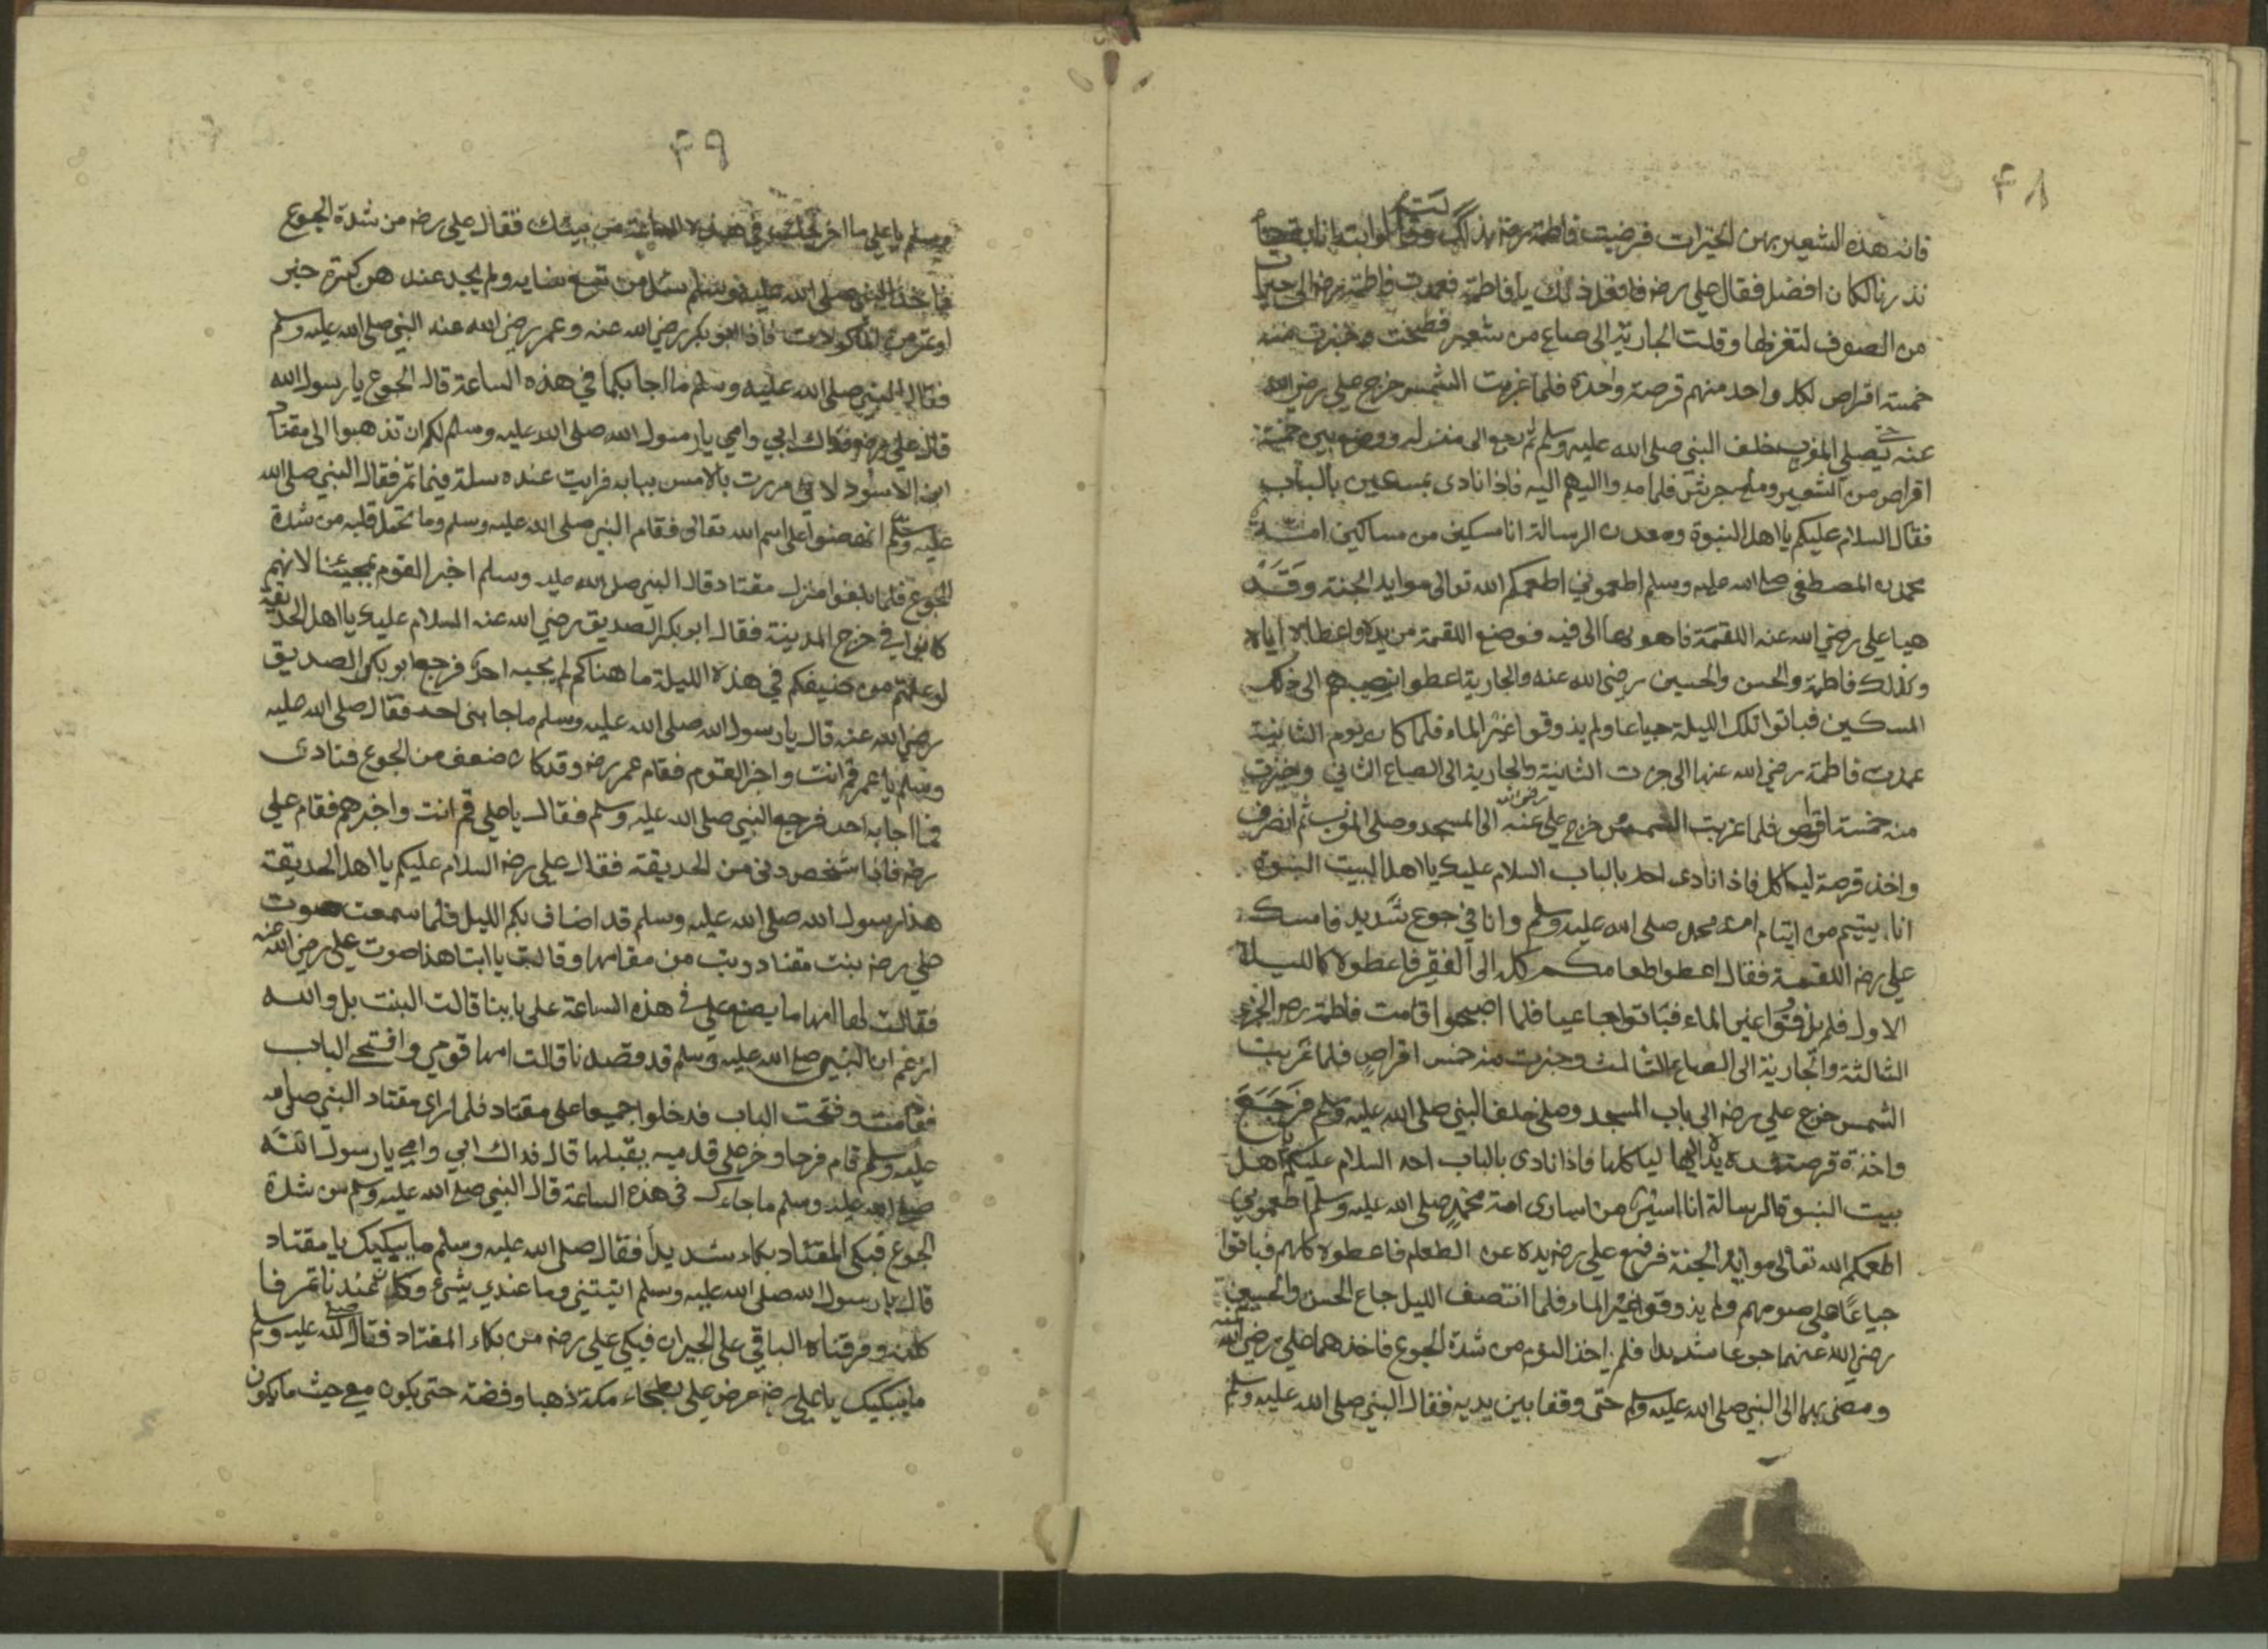 ٤٨
فانه هذه الشعير بهن الخيرات فرضيت فاطمة رضه بذلك وقالوا ابتدانا
نذرنا لكان افضل فقال علي رضه فافعل ذلك يا فاطمة فعمدت فاطمة رضه الى
من الصوف لتغزلها وقلت الجارية الى صاع من شعير فطحنت وخبزت منه
خمسة اقراص لكل واحد منهم قرصة واحدة فلما غربت الشمس خرج علي رضي الله
عنه حتى يصلي المغرب خلف النبي صلى الله عليه وسلم ثم رجع الى منزله ووضع بين خمسة
اقراص من الشعير وملح جريش فلما مدوا اليهم اليه فاذا نادى بمسكين بالباب
فقال السلام عليكم يا اهل النبوة ومعدن الرسالة انا مسكين من مساكين امة
محمدن المصطفى صلى الله عليه وسلم اطعموني اطعمكم الله تعالى موايد الجنة وقد
هيا علي رضي الله عنه اللقمة فاهو بها الى فيه فوضع اللقمة من يده واعطاه اياه
وكذلك فاطمة والحسن والحسين رضي الله عنه والجارية اعطوا نصيبهم الى ذلك
المسكين فباتوا تلك الليلة جياعا ولم يذوقوا غير الماء فلما كان يوم الثانية
عمدت فاطمة رضي الله عنها الى جزت الثانية والجارية الى الصاع الثاني وخبزت
منه خمسة اقراص فلما غربت الشمس خرج علي رضي الله عنه الى المسجد وصلى المغرب ثم انصرف
واخذ قرصة لياكل فاذا نادى احد بالباب السلام عليك يا اهل البيت النبوة
انا يتيم من ايتام امة محمد صلى الله عليه وسلم وانا في جوع شديد فامسك
علي رضه اللقمة فقال اعطوا طعامكم كله الى الفقير فاعطوه كالليلة
الاول فلم يذوقوا غير الماء فباتوا جياعيا فلما اصبحوا قامت فاطمة رضه الجزء
الثالثة والجارية الى الصاع الثالث وخبزت منه خمس اقراص فلما غربت
الشمس خرج علي رضه الى باب المسجد وصلى خلف النبي صلى الله عليه وسلم فرجع
واخذة قرصة يده اليها لياكلها فاذا نادى بالباب احد السلام عليكم يا اهل
بيت النبوة والرسالة انا اسير من اسارى امة محمد صلى الله عليه وسلم اطعموني
اطعمكم الله تعالى موايد الجنة فرفع علي رضه يده عن الطعام فاعطوه كلهم فباتوا
جياعا على صومهم ولم يذوقوا غير الماء فلما انتصف الليل جاع الحسن والحسين
رضي الله عنهما جوعا شديدا فلم ياخذ النوم من شدة الجوع فاخذهما علي رضي الله عنه
ومضى بهما الى النبي صلى الله عليه وسلم حتى وقفا بين يديه فقال النبي صلى الله عليه وسلم
٤٩
وسلم يا علي ما اخرجك في هذه الساعة من بيتك فقال علي رضه من شدة الجوع
فاخذ النبي صلى الله عليه وسلم سئل من تسع نسايه ولم يجد عند هن كسرة خبز
او تمر من الماكولات فاذا ابو بكر رضي الله عنه وعمر رضي الله عنه عند النبي صلى الله عليه وسلم
فقال النبي صلى الله عليه وسلم ما اجابكما في هذه الساعة قال الجوع يا رسول الله
قال علي رضه فداك ابي وامي يا رسول الله صلى الله عليه وسلم لكم ان تذهبوا الى مقتاد
ابن الاسود لاني مررت بالامس ببابه فرايت عنده سلة فيها تمر فقال النبي صلى الله
عليه وسلم انهضوا على اسم الله تعالى فقام النبي صلى الله عليه وسلم وما تحمل قلبه من شدة
الجوع فلما بلغوا منزل مقتاد قال النبي صلى الله عليه وسلم اخبر القوم بمجيئنا لانهم
كانوا في خرج المدينة فقال ابو بكر الصديق رضي الله عنه السلام عليك يا اهل الحديقة
لو علمتم من ضيفكم في هذه الليلة ما هناكم لم يجبه احد فرجع ابو بكر الصديق
رضي الله عنه قال يا رسول الله صلى الله عليه وسلم ما جابني احد فقال صلى الله عليه
وسلم يا عمر قم انت واخبر القوم فقام عمر رضه وقد كان ضعف من الجوع فنادى
فما اجابه احد فرجع النبي صلى الله عليه وسلم فقال يا علي قم انت واخبرهم فقام علي
رضه فاذا شخص دنى من الحديقة فقال علي رضه السلام عليكم يا اهل الحديقة
هذا رسول الله صلى الله عليه وسلم قد اضاف بكم الليل فلما سمعت صوت
علي رضه بنت مقتاد وثبت من مقامها وقالت يا ابتا هذا صوت علي رضي الله عنه
فقالت لها امها ما يصنع علي في هذه الساعة على بابنا قالت البنت بل والله
ازعم ان النبي صلى الله عليه وسلم قد قصدنا قالت امها قومي وافتحي الباب
فقامت وفتحت الباب فدخلوا جميعا على مقتاد فلما راى مقتاد النبي صلى الله
عليه وسلم قام فرحا وخر على قدميه يقبلها قال فداك ابي وامي يا رسول الله
صلى الله عليه وسلم ما جاءك في هذه الساعة قال النبي صلى الله عليه وسلم من شدة
الجوع فبكى المقتاد بكاء شديدا فقال صلى الله عليه وسلم ما يبكيك يا مقتاد
قال يا رسول الله صلى الله عليه وسلم اتيتني وما عندي شيئ وكان عندنا تمر فا
كلنه وفرقناه الباقي على الجيران فبكى علي رضه من بكاء المقتاد فقال صلى الله عليه وسلم
ما يبكيك يا علي رضه عرض علي بطحاء مكة ذهبا وفضة حتى يكون معي حيث ما يكون